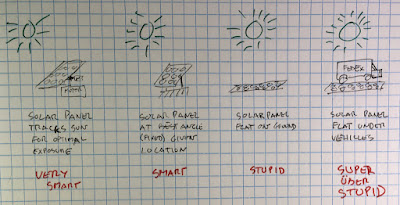 FEDEX
MOTOR
SOLAR PANEL
TRACKS SUN
FOR OPTIMAL
EXPOSURE
VERY
SMART
SOLAR PANEL
AT BEST ANGLE
(FIXED) GIVEN
LOCATION
SMART
SOLAR PANEL
FLAT ON GROUND
STUPID
SOLAR PANEL
FLAT UNDER
VEHICLES
SUPER
ÜBER
STUPID